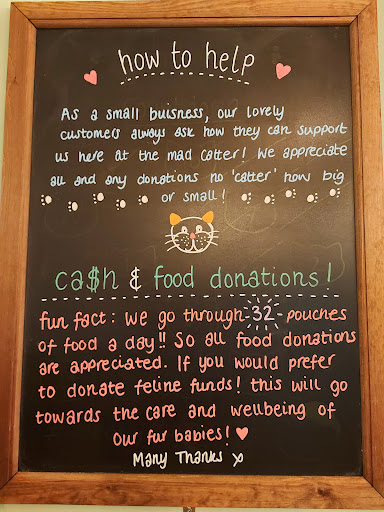 how to help
As a small buisness, our lovely
customers always ask how they can support
us here at the mad catter! We appreciate
all and any donations no 'catter' how big
or small!
ca$h & food donations!
fun fact: we go through -32- pouches
of food a day!! So all food donations
are appreciated. If you would prefer
to donate feline funds! this will go
towards the care and wellbeing of
our fur babies!
Many Thanks x